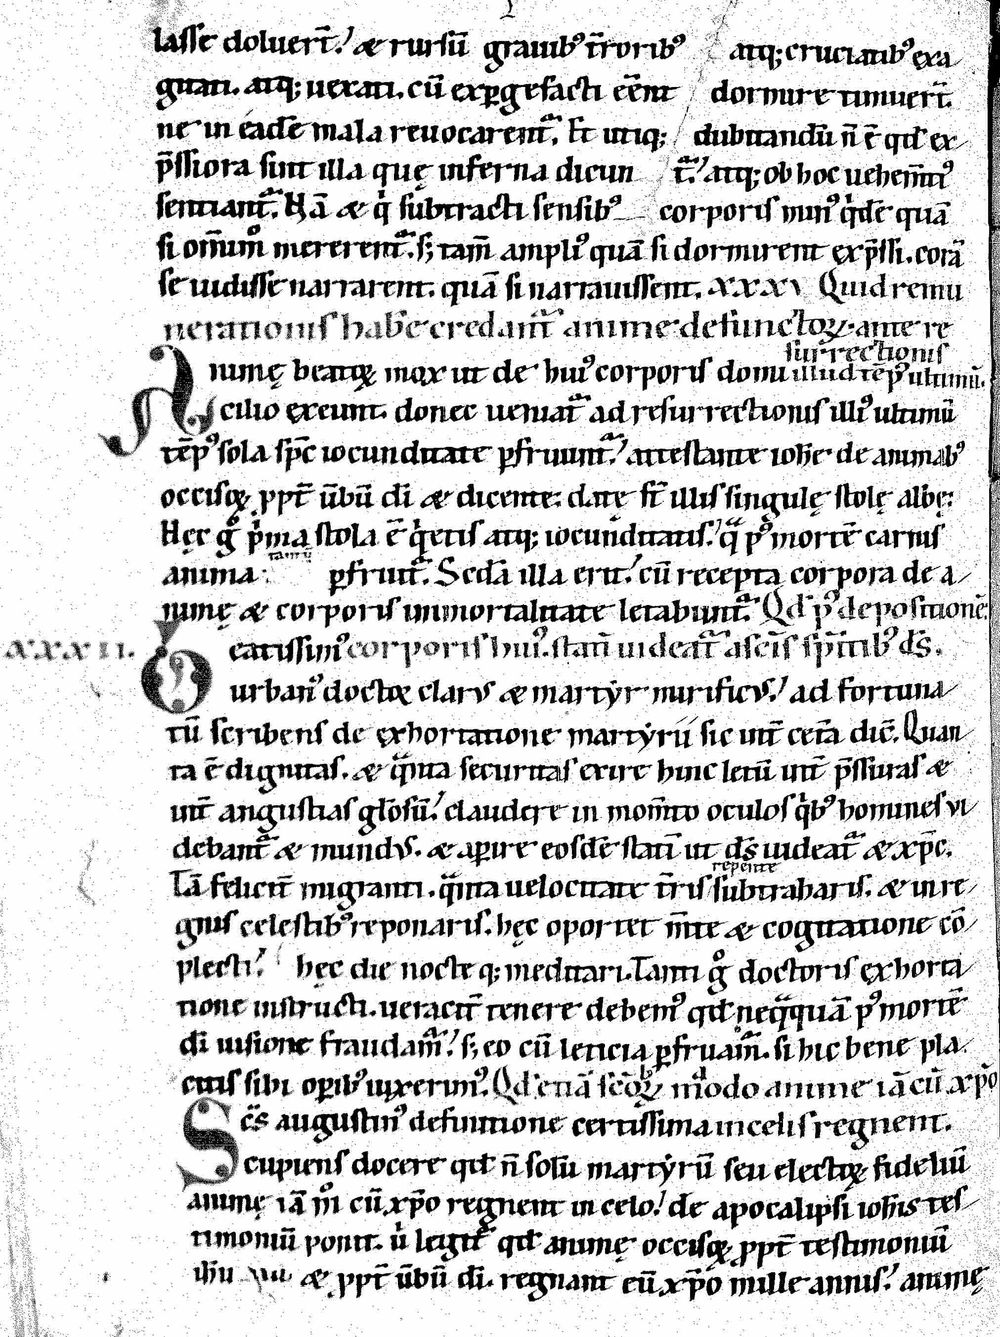 lasse doluer̄t. & rursū grauib; t̄rorib; atq; cruciatib; exa
gitati. atq; uexati. cū exp̱gefacti eēnt dormire timuer̄t.
ne in eadē mala reuocarent̄. Et utiq; dubitandū n̄ ē qđ ex
p̄ssiora sint illa quę inferna dicunt̄. atq; ob hoc uehem̄tiꝰ
sentiant̄. Nā & q̇ subtracti sensibꝰ corporis minꝰ q̇dē quā
si om̄imo mererent̄. s; tam̄ ampliꝰ quā si dormirent exp̄ssi. corā
se uidisse narrarent. quā si narrauissent. xxxı Quid remu
nerationis habe credant̄ anime defunctoꝝ. ante re
surrectionis
Animę beatoꝝ mox ut de huiꝰ corporis domi illud tēpꝰ ultimū.
cilio exeunt. donec ueniat̄ ad resurrectionis illiꝰ ultimū
tēpꝰ sola sp̄c iocunditate p̱fruunt̄. attestante ioh̄e de animabꝰ
occisoꝝ ꝓpt̄ ūbū dı̄ & dicente: date st̄ illis singulę stolę albę:
Hęc g̊ ṗma stola ē q̇etis atq; iocunditatis. q̄ pꝰ mortē carnis
tantū
anima p̱fruit̄. Scda illa erit. cū recepta corpora de a
nimę & corporis immortalitate letabunt̄. Qđ pꝰ depositionē
xxxıı. Beatissimꝰ corporis huiꝰ. statı̄ uideat̄ a sc̄is sp̄itibꝰ dš.
urbanꝰ doctoꝝ clarꝰ & martyr mirificꝰ. ad fortuna
tū scribens de exhortatione martyrii sic int̄ cet̄a dic̄. Quan
ta ē dignitas. & q̄nta securitas exire hinc letū int̄ p̄ssuras &
int̄ angustias gl̄osū. claudere in mom̄to oculos q̇bꝰ homines vi
debant̄ & mundꝰ. & aꝑire eosdē statı̄ ut dš uideat̄ & xp̄c.
repente
Tā felicit̄ migranti. q̄nta uelocitate t̄ris subtraharis. & in re
gnis celestibꝰ reponaris. hęc oportet m̄te & cogitatione cō
plecti. hęc die nocte q; meditari. Tanti g̊ doctoris exhorta
tione instructi. ueracit̄ tenere debemꝰ qđ neq̄quā pꝰ mortē
dı̄ uisione fraudam̄. s; eo cū leticia ꝑfruam̄. si hic bene pla
citis sibi oꝑibꝰ uixerimꝰ. Qđ etiā sc̄oꝝ modo anime iā cū xp̄o
Scs̄ augustinꝰ definitione certissima in celis regnent.
cupiens docere qđ n̄ solū martyrū seu electoꝝ fideliū
animę iā m̊ cū xp̄o regnent in celo. de apocalipsi ioh̄is tes
timoniū ponit. ů legit̄ qđ animę occisoꝝ ꝓpt̄ testimoniū
ih̄u & ꝓpt̄ ūbū dı̄. regnant cū xp̄o mille annis. animę